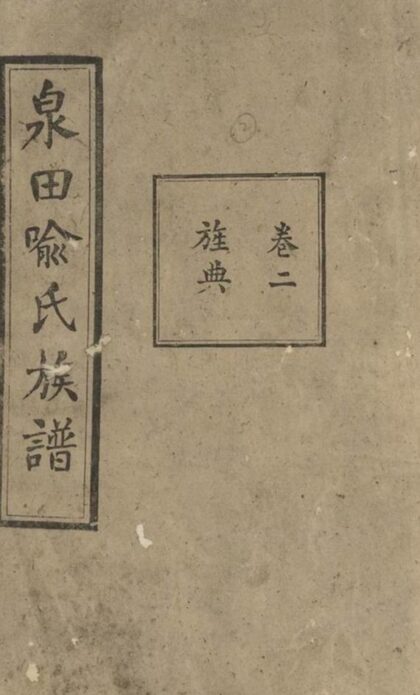 泉田喻氏族譜
卷二
旌典
2